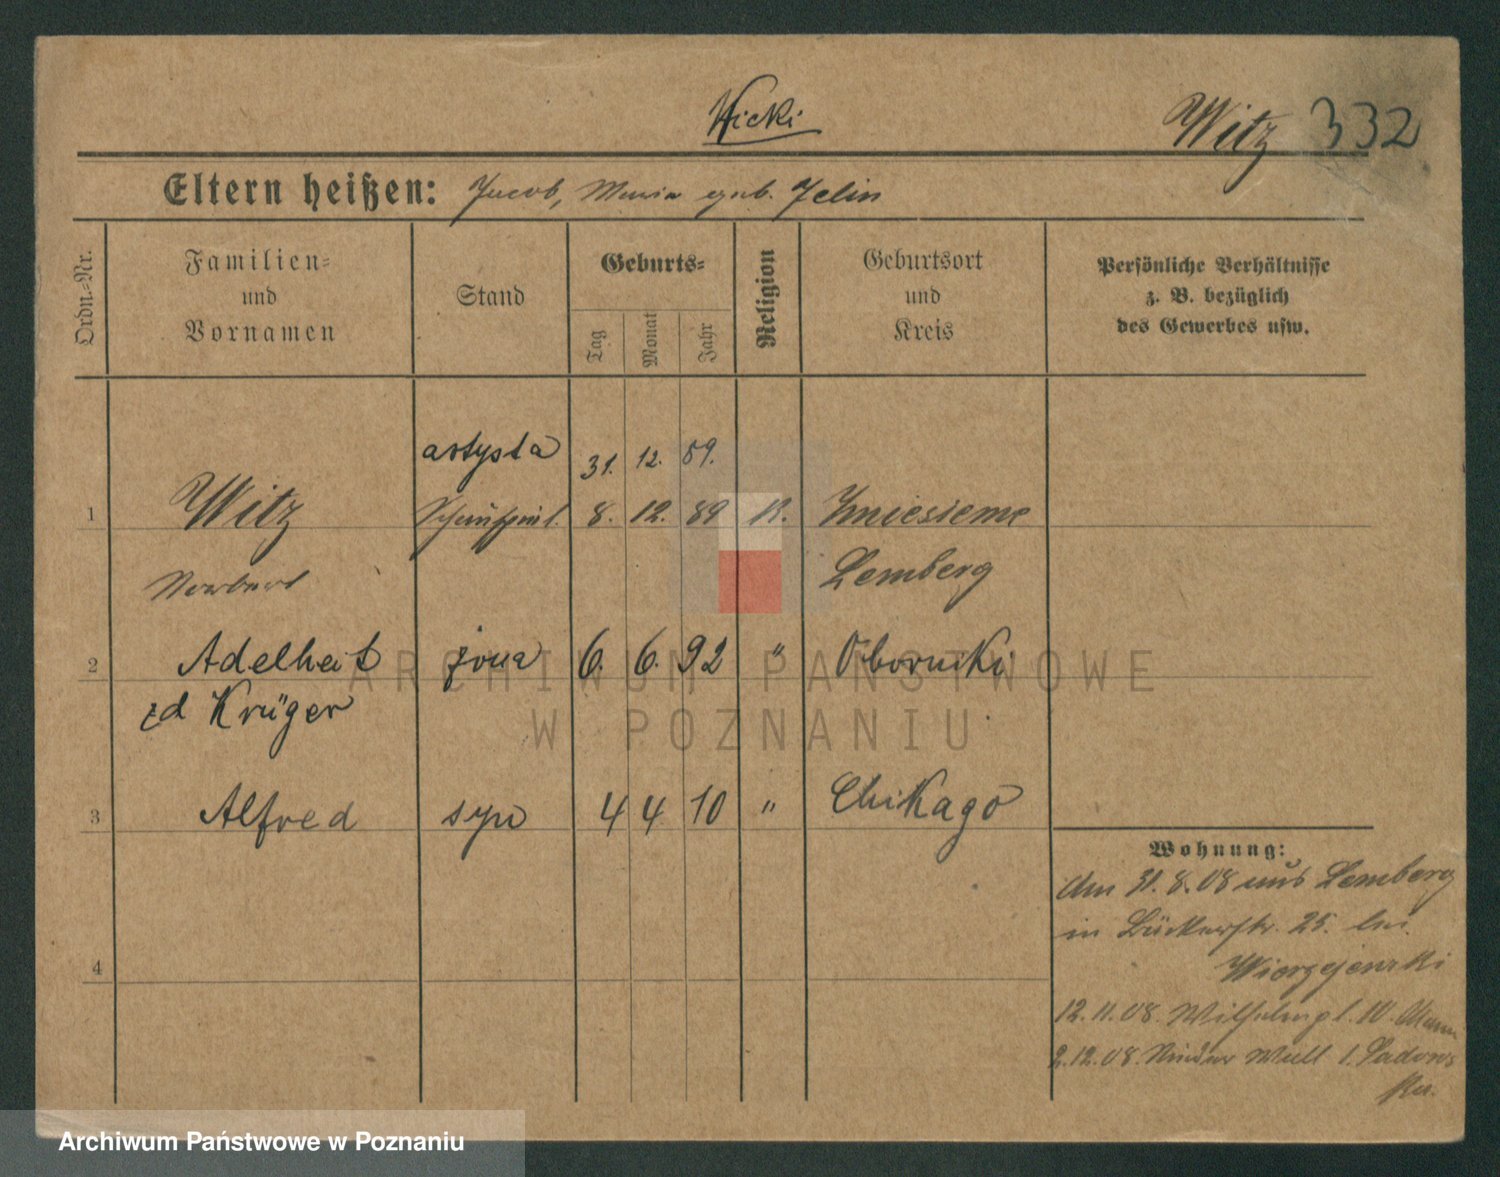 Wicki
Witz 332
Eltern heißen: Jacob, Maria geb. Jelin
Ordn.-Nr.
Familien-
und
Vornamen
Stand
Geburts-
Tag
Monat
Jahr
Religion
Geburtsort
und
Kreis
Persönliche Verhältnisse
z. B. bezüglich
des Gewerbes usw.
artysta 31. 12. 89.
1 Witz Schauspiel. 8. 12. 89 Zniesieme
Norbert Lemberg
2 Adelheit żona 6. 6. 92 " Oborniki
zd Krüger
3 Alfred syn 4 4 10 " Chikago
4
Wohnung:
Am 31.8.08 aus Lemberg
in Bäckerstr. 25. bei
Wierzejewski
12.11.08. Wilhelmpl. 10.
2.12.08. Wall 1.
ARCHIWUM PAŃSTWOWE
W POZNANIU
Archiwum Państwowe w Poznaniu